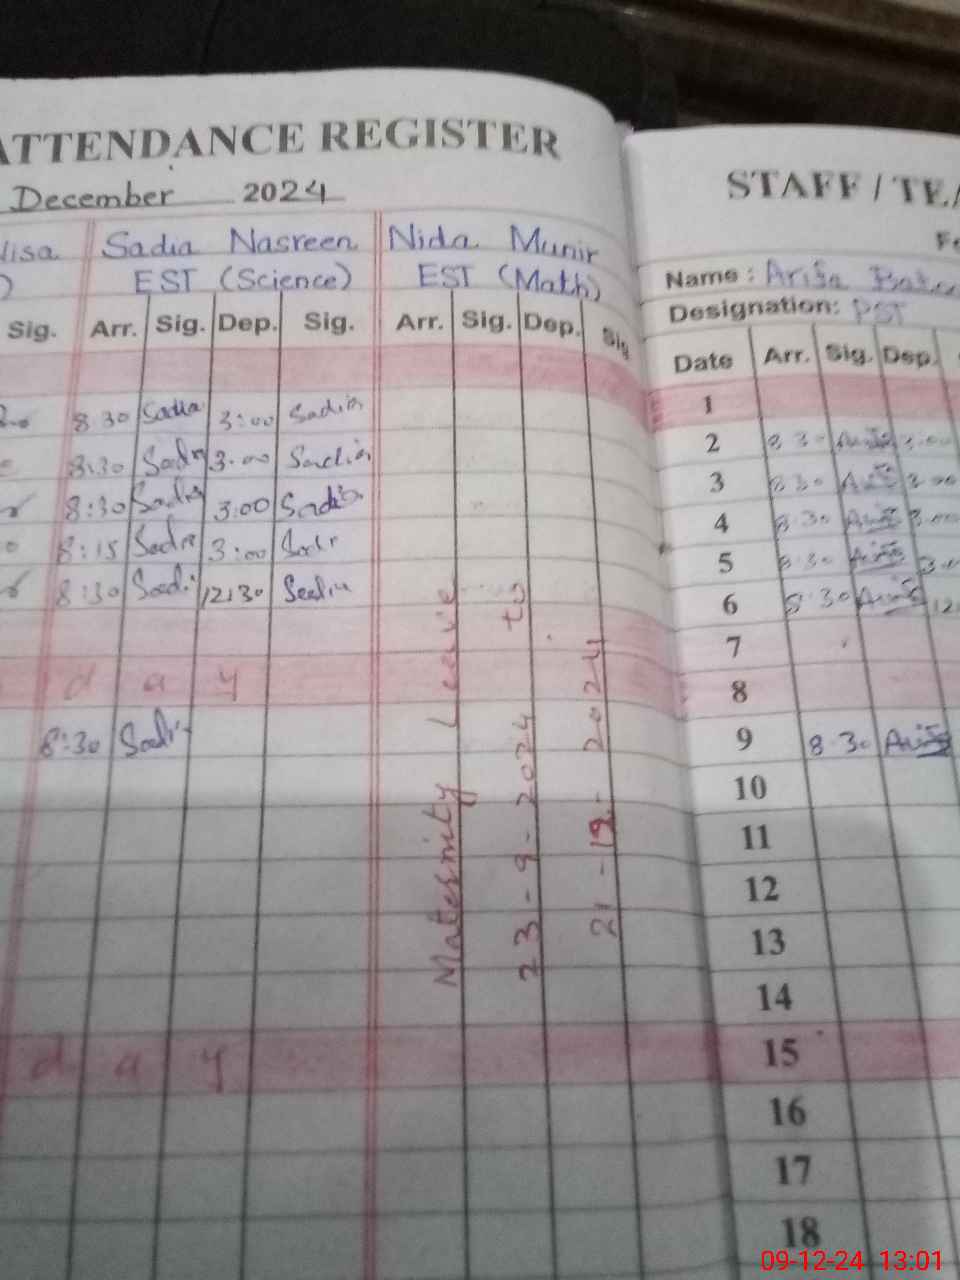 ATTENDANCE REGISTER
December 2024
Sadia Nasreen
EST (Science)
Nida Munir
EST (Math)
Sig. Arr. Sig. Dep. Sig. Arr. Sig. Dep. Sig
8 30 Sadia 3:00 Sadia
8:30 Sadia 3.00 Sadia
8:30 Sadia 3:00 Sadia
8:15 Sadia 3:00 Sadi
8:30 Sadi 12:30 Sadia
d a y
8:30 Sadi
d a y
Maternity Leave
23-9-2024 to
21-12-2024
STAFF / TEA
Name : Arifa
Designation: PST
Date Arr. Sig. Dep.
1
2 8 30 Arifa 3:00
3 8 30 Arifa 3:00
4 8.30 Arifa 3:00
5 8.30 Arifa 3:0
6 8:30 Arifa 12
7
8
9 8.30 Arifa
10
11
12
13
14
15
16
17
18
09-12-24 13:01